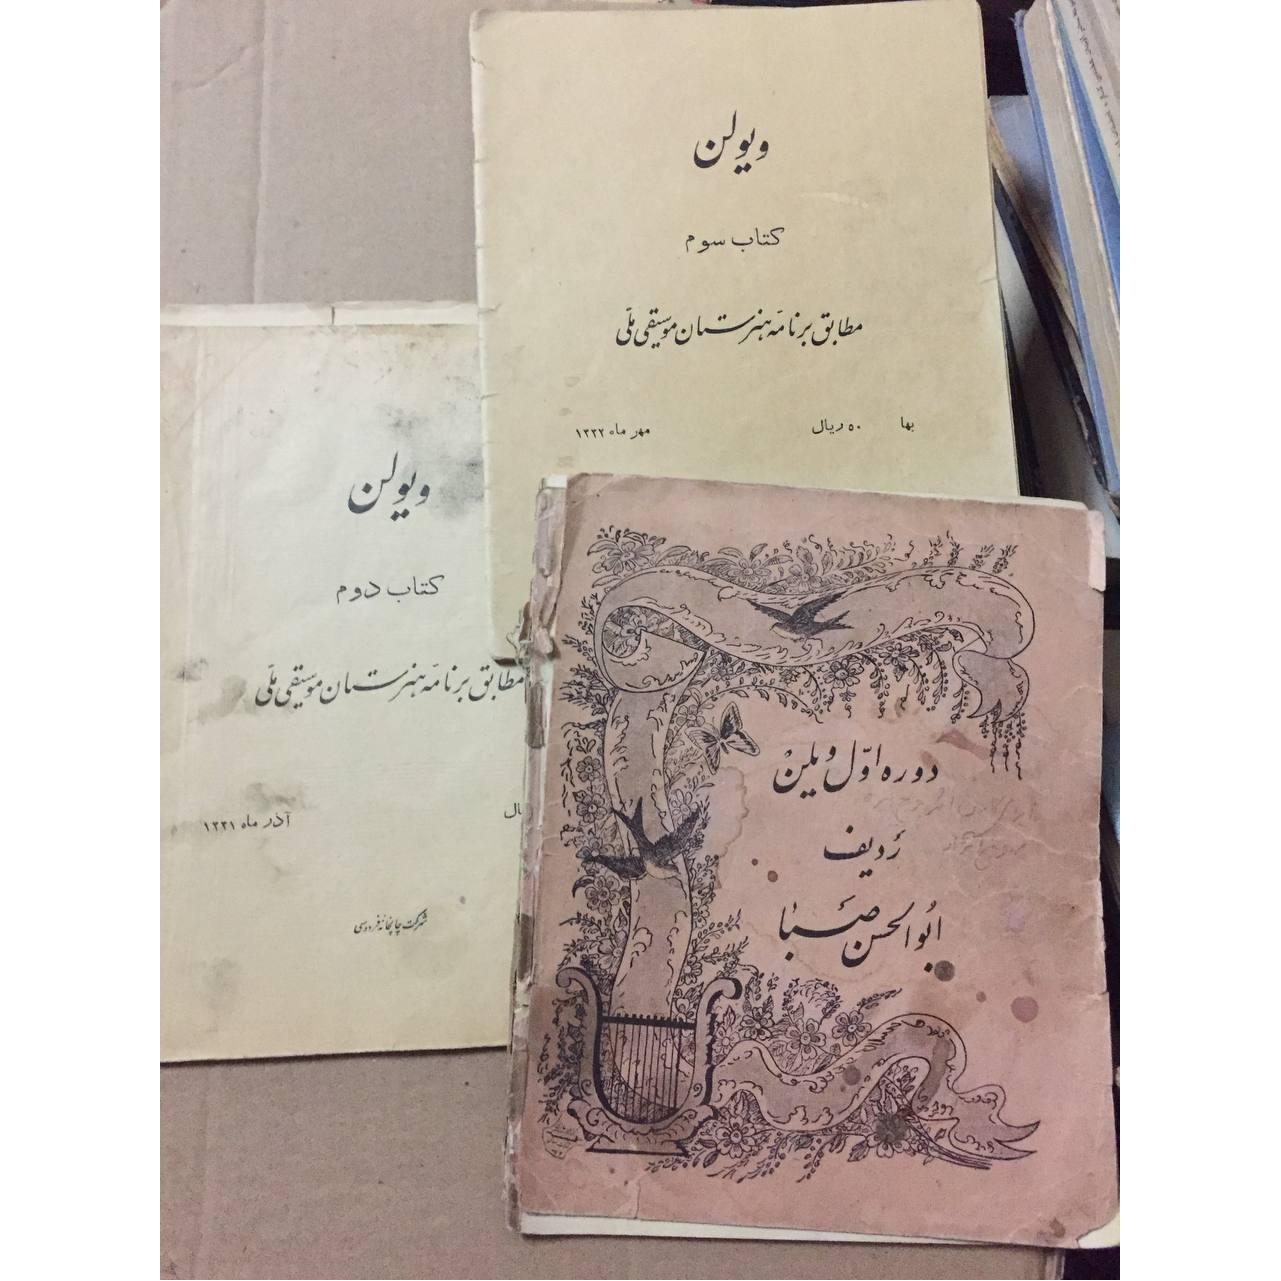 ویولن
کتاب سوم
مطابق برنامه هنرستان موسیقی ملّی
بها ۵۰ ریال
مهر ماه ۱۳۳۲
ویولن
کتاب دوم
مطابق برنامه هنرستان موسیقی ملّی
آذر ماه ۱۳۳۱
شرکت چاپخانه فردوسی
دوره اوّل ویلن
ردیف
ابوالحسن صبا